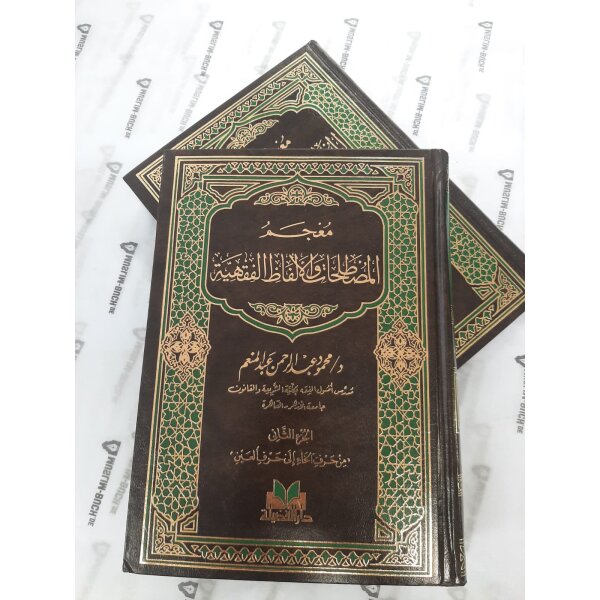 معجم
المصطلحات والألفاظ الفقهية
د/محمود عبد الرحمن عبد المنعم
مدرس أصول الفقه بكلية الشريعة والقانون
جامعة الأزهر - القاهرة
الجزء الثاني
«من حرف الحاء إلى حرف العين»
دار الفضيلة
MUSLIM-BUCH.DE